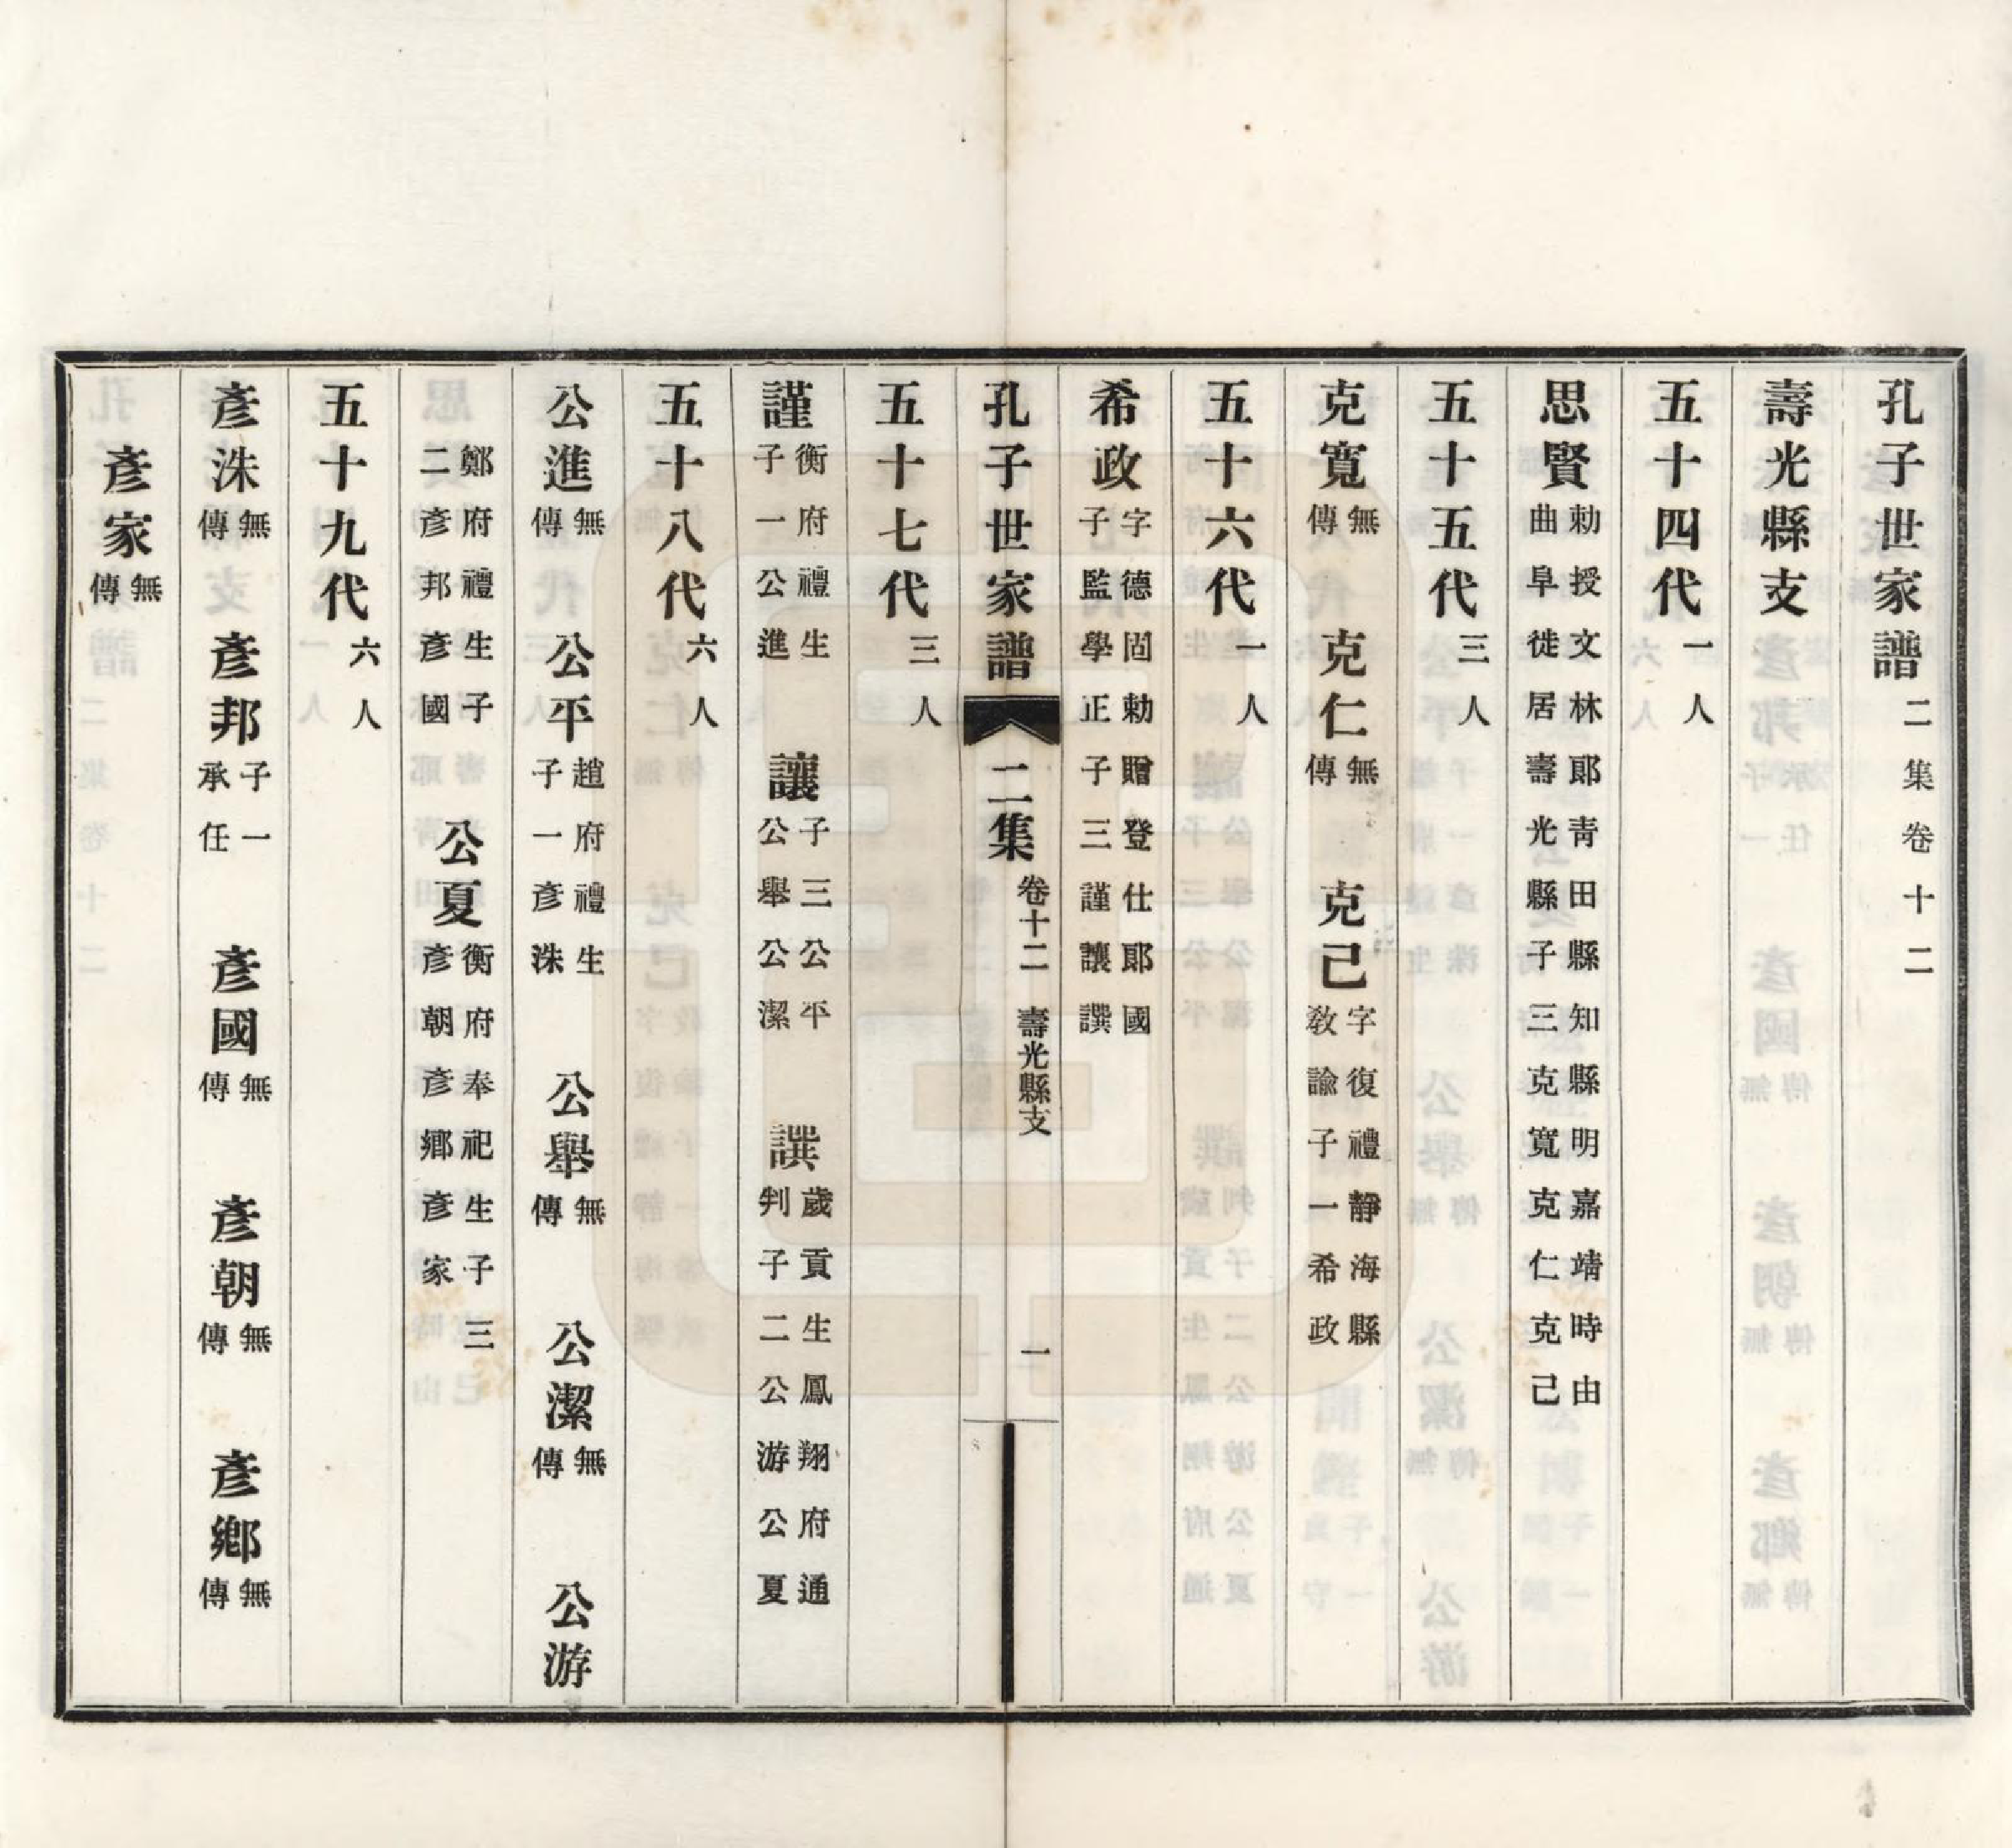 孔子世家譜二集卷十二
壽光縣支
五十四代一人
思賢勅授文林郎青田縣知縣明嘉靖時由曲阜徙居壽光縣子三克寬克仁克己
五十五代三人
克寬無傳 克仁無傳 克己字復禮靜海縣敎諭子一希政
五十六代一人
希政字德固勅贈登仕郎國子監學正子三謹讓譔
孔子世家譜 二集 卷十二 壽光縣支 一
五十七代三人
謹衡府禮生子一公進 讓子三公平公舉公潔 譔歲貢生鳳翔府通判子二公游公夏
五十八代六人
公進無傳 公平趙府禮生子一彥洙 公舉無傳 公潔無傳 公游
鄭府禮生子二彥邦彥國 公夏衡府奉祀生子三彥朝彥鄉彥家
五十九代六人
彥洙無傳 彥邦子一承任 彥國無傳 彥朝無傳 彥鄉無傳
彥家無傳